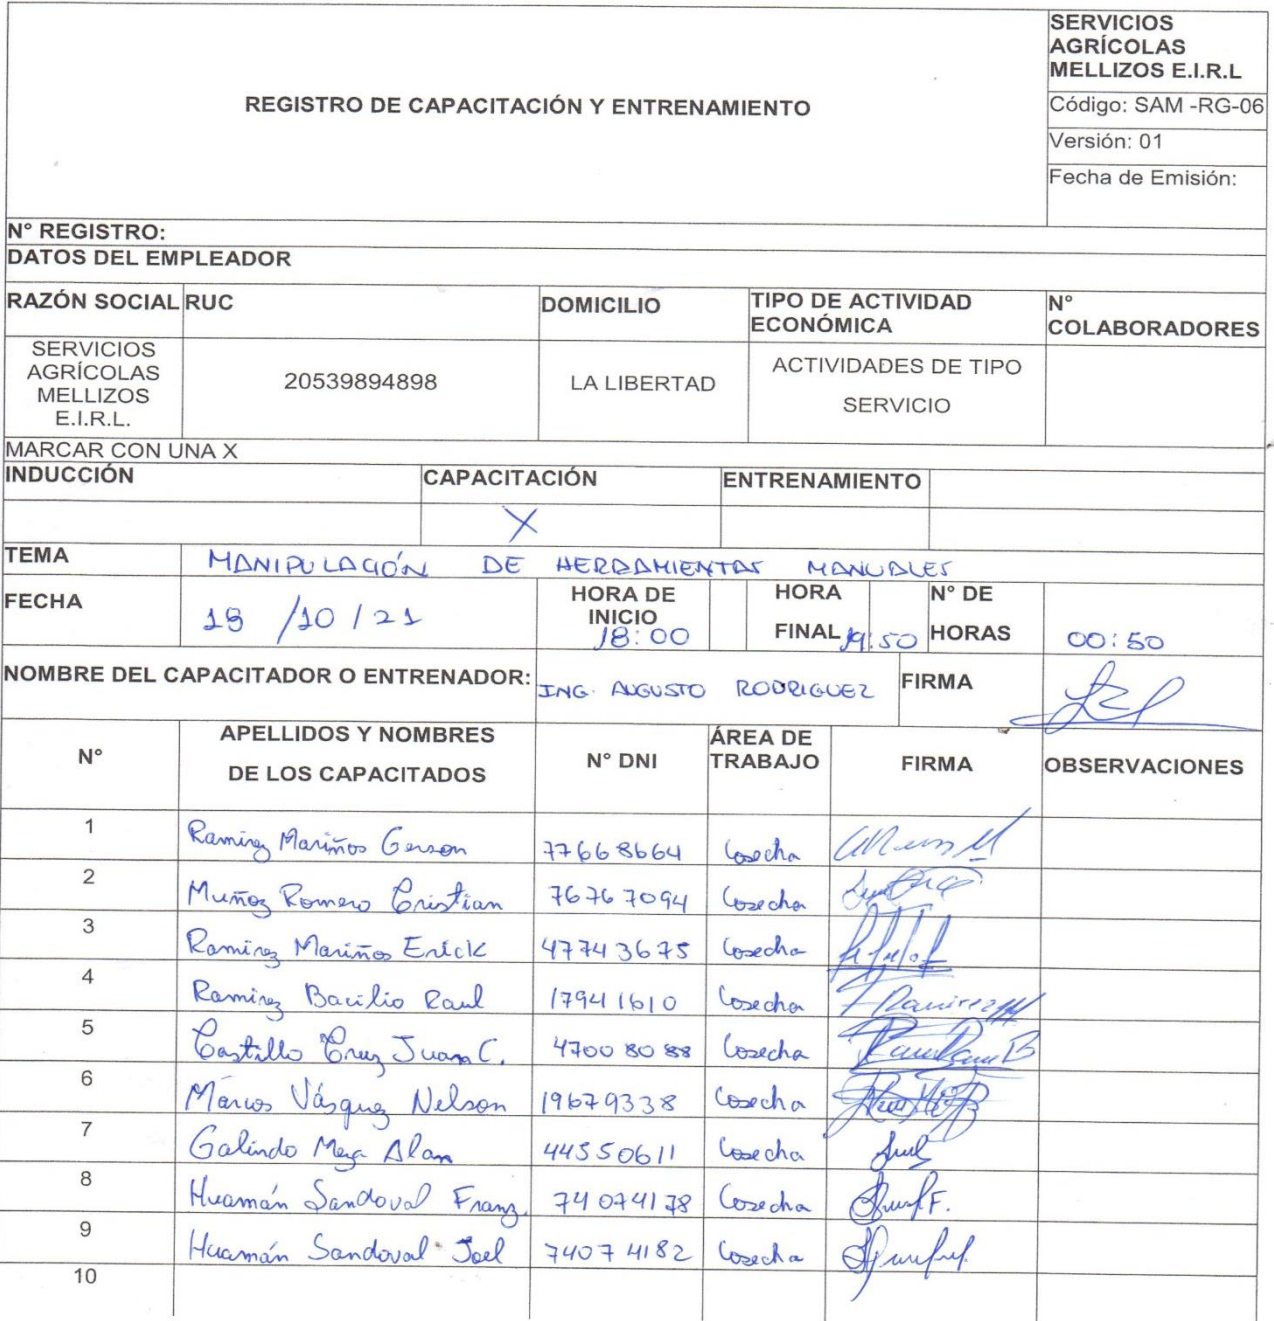 REGISTRO DE CAPACITACIÓN Y ENTRENAMIENTO
SERVICIOS
AGRÍCOLAS
MELLIZOS E.I.R.L
Código: SAM -RG-06
Versión: 01
Fecha de Emisión:
N° REGISTRO:
DATOS DEL EMPLEADOR
RAZÓN SOCIAL RUC DOMICILIO TIPO DE ACTIVIDAD ECONÓMICA N° COLABORADORES
SERVICIOS
AGRÍCOLAS
MELLIZOS
E.I.R.L.
20539894898
LA LIBERTAD
ACTIVIDADES DE TIPO
SERVICIO
MARCAR CON UNA X
INDUCCIÓN CAPACITACIÓN ENTRENAMIENTO
X
TEMA MANIPULACIÓN DE HERRAMIENTAS MANUALES
FECHA /10/21 HORA DE INICIO 18:00 HORA FINAL :50 N° DE HORAS 00:50
NOMBRE DEL CAPACITADOR O ENTRENADOR: ING. AUGUSTO RODRIGUEZ FIRMA
N° APELLIDOS Y NOMBRES DE LOS CAPACITADOS N° DNI ÁREA DE TRABAJO FIRMA OBSERVACIONES
1 Ramirez Mariños Gerson 77668664 Cosecha
2 Muñoz Romero Cristian 76767094 Cosecha
3 Ramirez Mariños Erick 47743675 Cosecha
4 Ramirez Bacilio Raul 17941610 Cosecha Ramirez
5 Castillo Cruz Juan C. 47008088 Cosecha
6 Marcos Vásquez Nelson 19679338 Cosecha
7 Galindo Meza Alan 44550611 Cosecha
8 Huamán Sandoval Franz. 74074178 Cosecha
9 Huamán Sandoval Joel 74074182 Cosecha
10